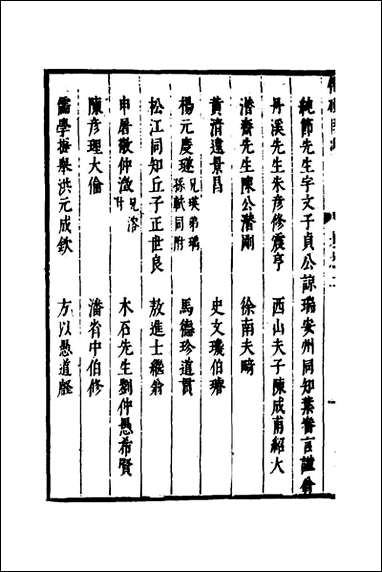 純節先生宇文子貞公諒　瑞安州同知葉審言謹翁
丹溪先生朱彦修震亨　西山夫子陳成甫紹大
潛齋先生陳公潛剛　徐南夫畸
黄清遠景昌　史文璣伯璿
楊元慶璲兄瑛弟璚孫軾同附　馬德珍道貫
松江同知丘子正世良　敖進士繼翁
申屠敬仲澂兄溶附　木石先生劉仲愚希賢
陳彦理大倫　潘省中伯修
儒學提舉洪元成欽　方以愚道壡